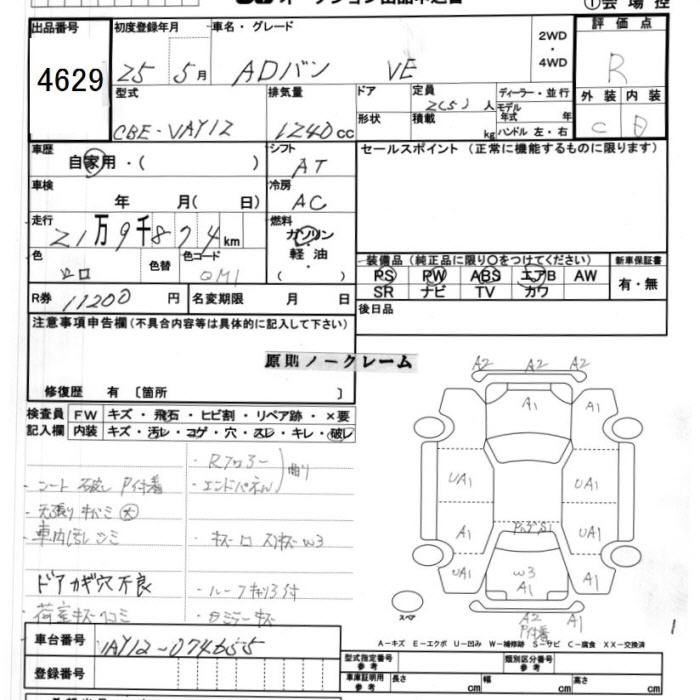 出品番号 初度登録年月 車名・グレード 2WD ・ 4WD 評価点
4629 25 5月 ADバン VE R
型式 排気量 ドア 定員 2(5)人 ディーラー・並行 外装 内装
CBE-VAY12 1240cc 形状 積載 kg モデル年式 年 ハンドル 左・右 C D
車歴 シフト セールスポイント (正常に機能するものに限ります)
自家用・( ) AT
車検 冷房
年 月( 日) AC
走行 燃料
21万9千874km ガソリン
色 色替 色コード 軽油
シロ QM1 ・( )
装備品 (純正品に限り○をつけてください) 新車保証書
PS PW ABS エアB AW 有・無
SR ナビ TV カワ
R券 11200円 名変期限 月 日 後日品
注意事項申告欄(不具合内容等は具体的に記入して下さい)
原則ノークレーム
修復歴 有 〔箇所 〕
検査員 FW キズ・飛石・ヒビ割・リペア跡・×要
記入欄 内装 キズ・汚レ・コゲ・穴・スレ・キレ・破レ
・Rフロアー
・シート破レ P付着 ・エンドパネル 曲り
・天張り キバミ 大
・車内汚レ シミ ・キズ凹 スリキズ W3
ドアカギ穴不良 ・ルーフキャリア付
・荷室キズ凹シミ
A2 A2 A2
A1 A1
UA1 UA1
A1 UA1
UA1 W3 A1
A1
A2 A1
P付着
スペア
1
A-キズ E-エクボ U-凹み W-補修跡 S-サビ C-腐食 XX-交換済
車台番号 VAY12-074655
型式指定番号 参考 類別区分番号 参考
登録番号 車庫証明 参考 長さ cm 幅 cm 高さ cm